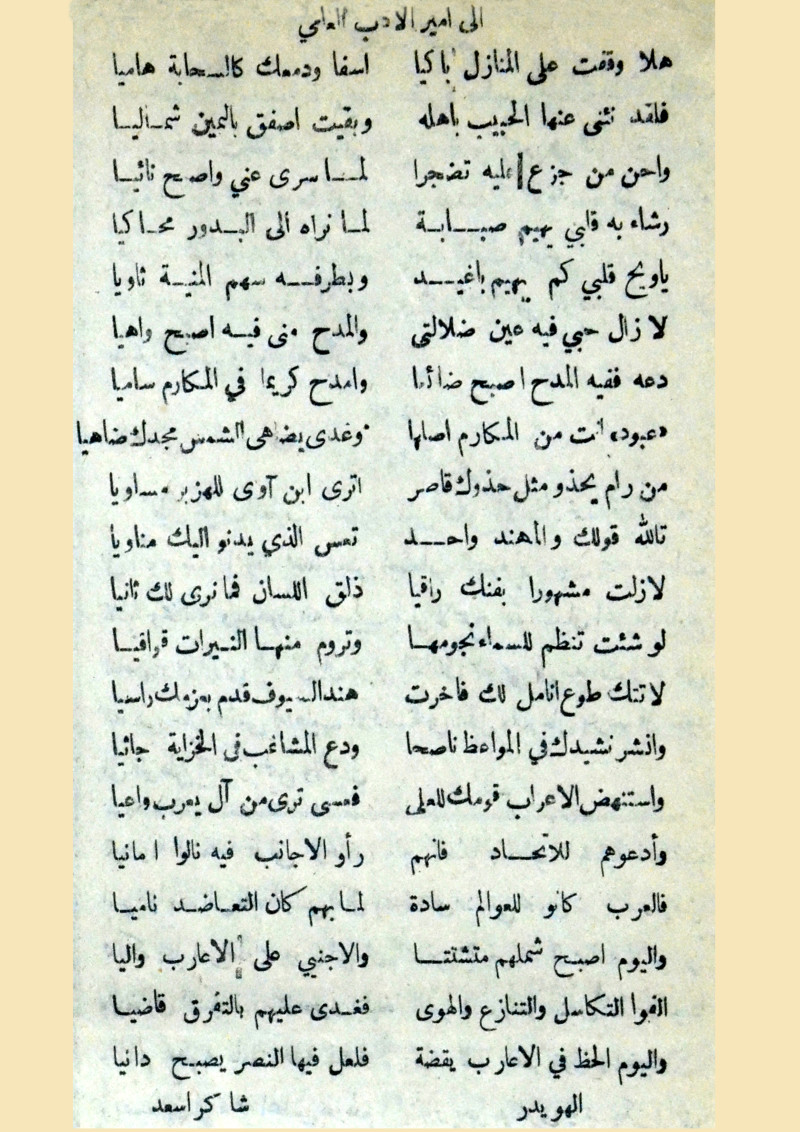 الى امير الادب العامي
هلا وقفت على المنازل باكيا اسفا ودمعك كالسحابة هاميا
فلقد نئى عنها الحبيب باهله وبقيت اصفق باليمين شماليا
واحن من جزع عليه تضجرا لما سرى عني واصبح نائيا
رشاء به قلبي يهيم صبابة لما نراه الى البدور محاكيا
ياويح قلبي كم يهيم باغيد وبطرفه سهم المنية ثاويا
لا زال حبي فيه عين ضلالتى والمدح منى فيه اصبح واهيا
دعه ففيه المدح اصبح ضائعا وامدح كريما في المكارم ساميا
«عبود» انت من المكارم اصلها وغدى يضاهى الشمس مجدك ضاهيا
من رام يحذو مثل حذوك قاصر اترى ابن آوى للهزبر مساويا
تالله قولك والمهند واحد تعس الذي يدنو اليك مناويا
لازلت مشهورا بفنك راقيا ذلق اللسان فما نرى لك ثانيا
لو شئت تنظم للسماء نجومها وتروم منها النيرات قرافيا
لاتتك طوع انامل لك فاخرت هند السيوف فدم بعزمك راسيا
وانشر نشيدك في المواعظ ناصحا ودع المشاغب فى الخزاية جاثيا
واستنهض الاعراب قومك للعلى فعسى ترى من آل يعرب واعيا
وأدعوهم للاتحاد فانهم رأو الاجانب فيه نالوا امانيا
فالعرب كانو للعوالم سادة لما بهم كان التعاضد ناميا
واليوم اصبح شملهم متشتتا والاجنبي على الاعارب واليا
الفوا التكاسل والتنازع والهوى فغدى عليهم بالتفرق قاضيا
واليوم الحظ في الاعارب يقضة فلعل فيها النصر يصبح دانيا
الهويدر شاكر اسعد